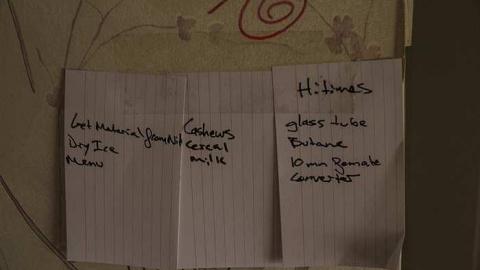 Get Material from
Dry Ice
Menu
Cashews
Cereal
milk
Hitimes
glass tube
Butane
10 mm female
Converter